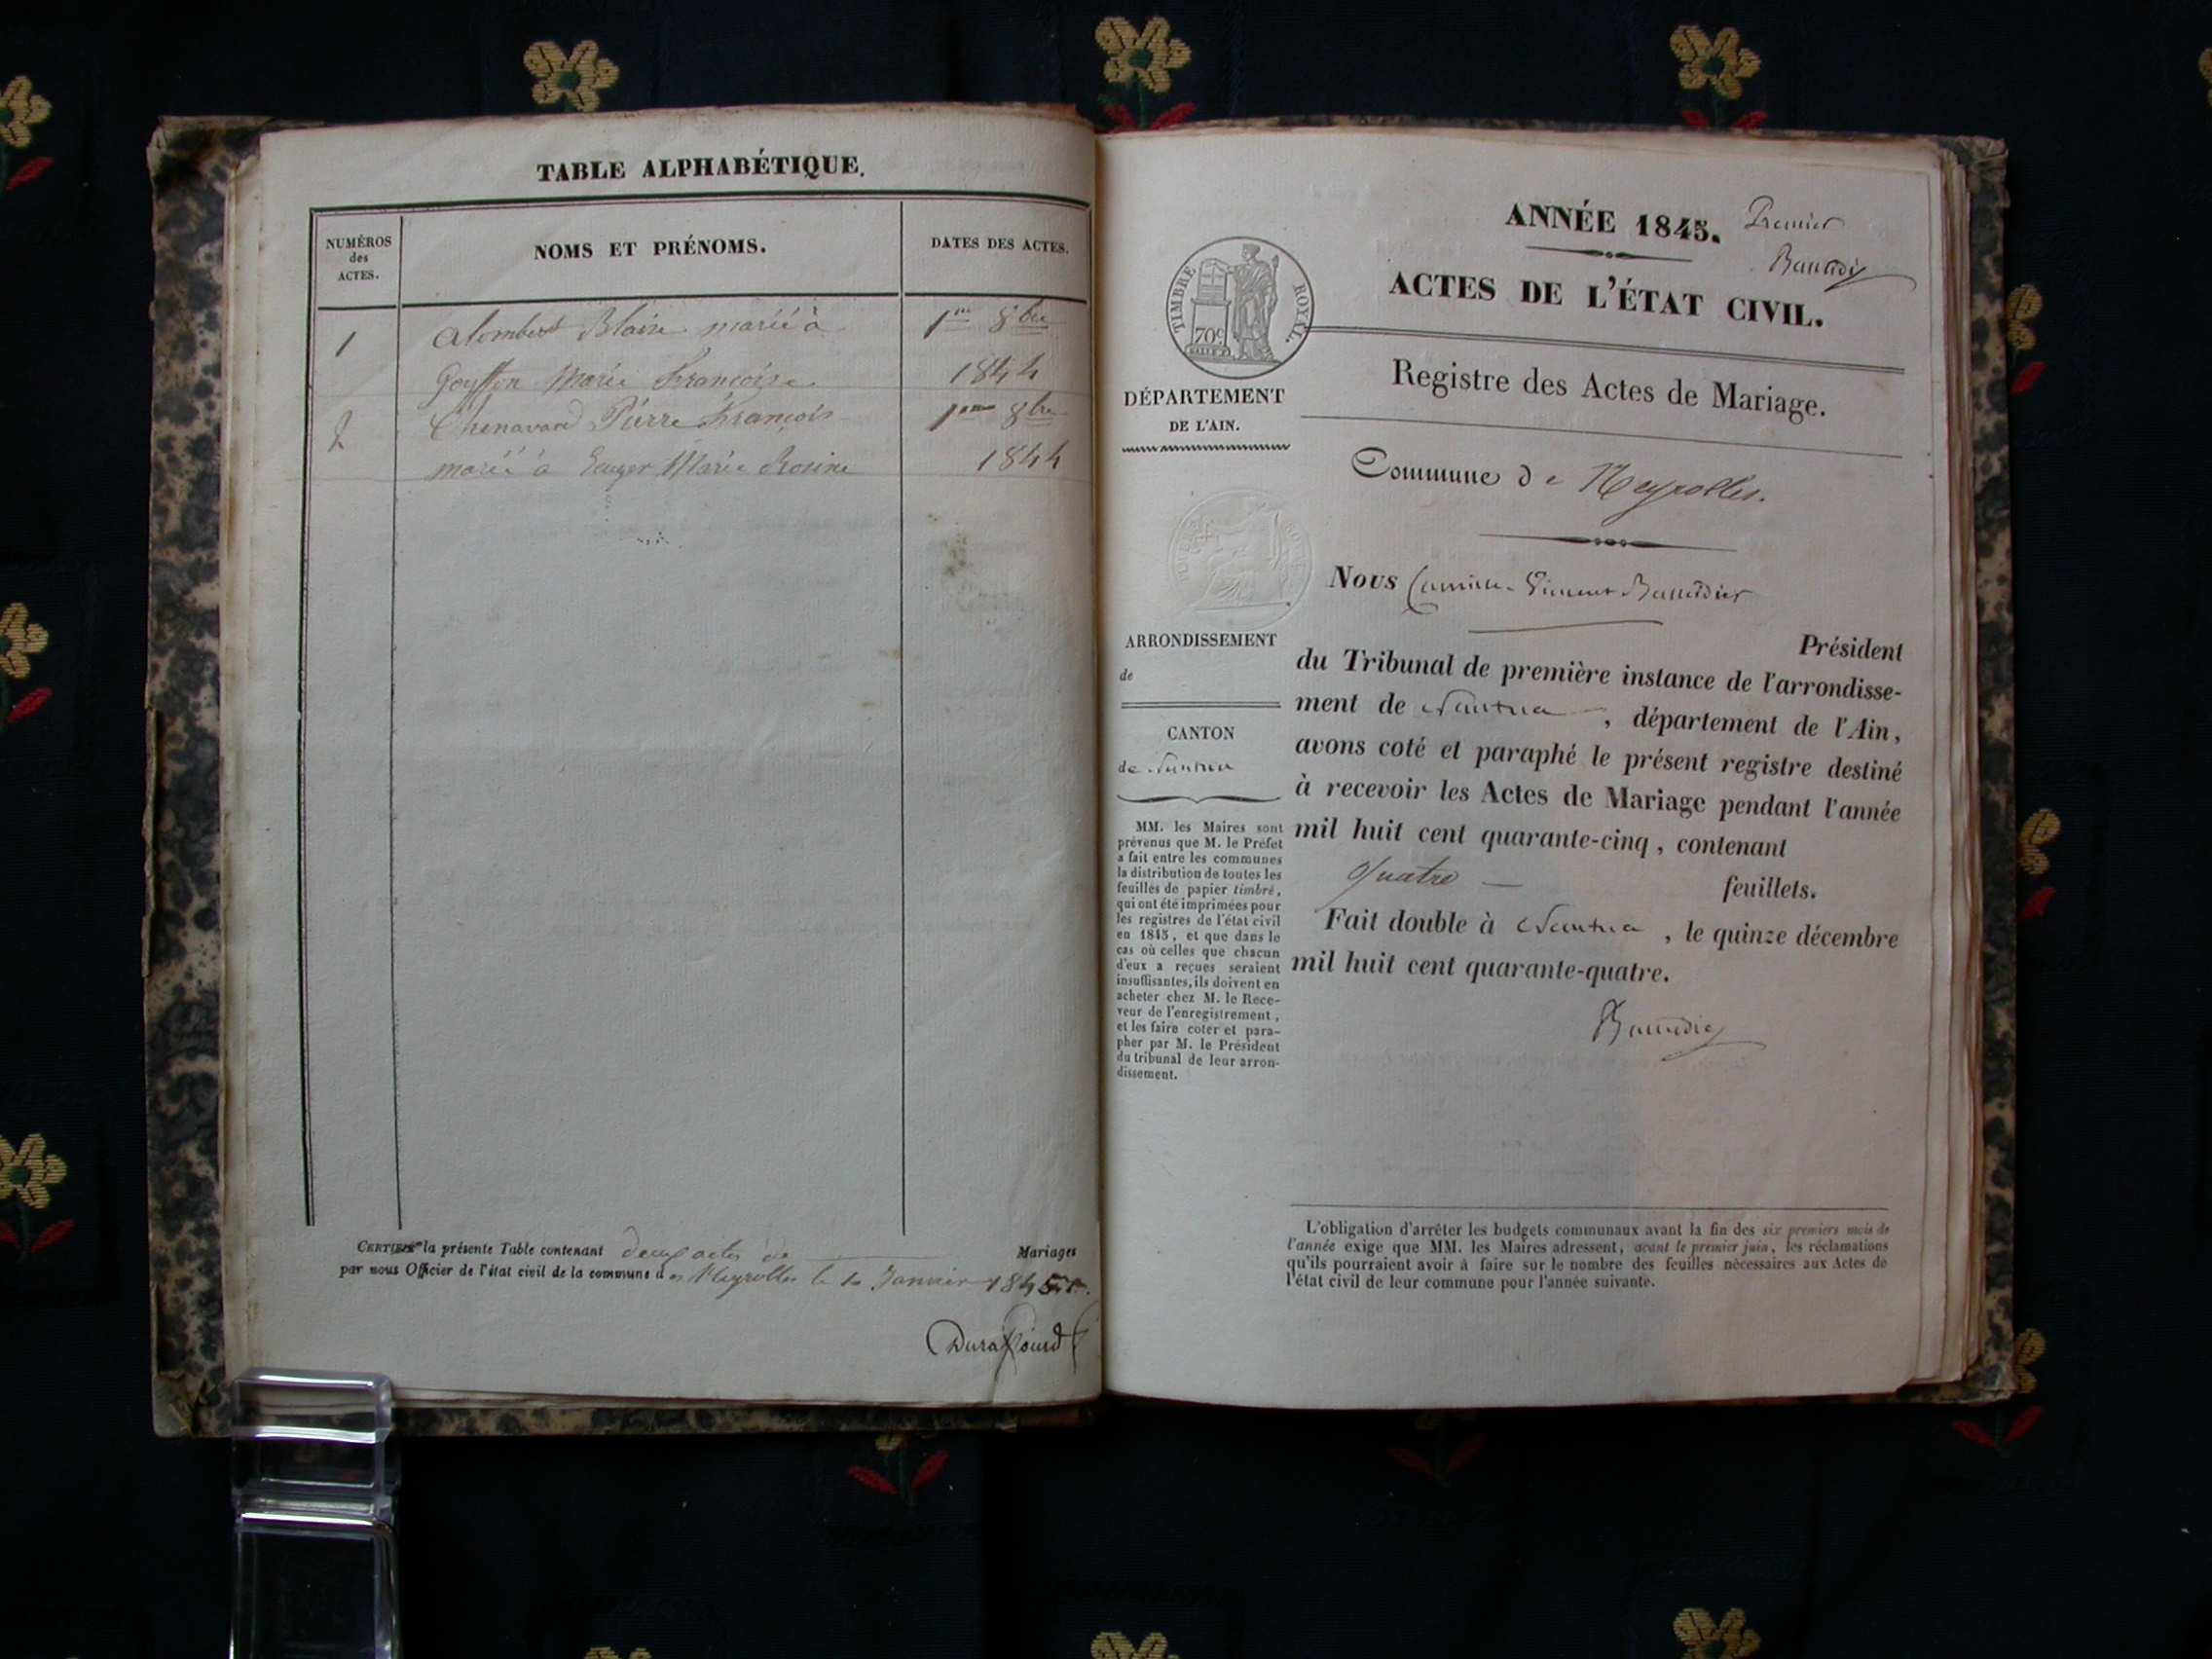 TABLE ALPHABÉTIQUE.
NUMÉROS
des
ACTES.
NOMS ET PRÉNOMS.
DATES DES ACTES.
1
Alombert Blaise marié à
1er 8bre
Goyffon Marie Françoise
1844
2
Chenavard Pierre François
1er 8bre
marié à Marie Rosine
1844
la présente Table contenant deux actes de Mariages
par nous Officier de l'état civil de la commune de Neyrolles le 1er Janvier 1845
Duraffourd
ANNÉE 1845.
Premier
ACTES DE L'ÉTAT CIVIL.
TIMBRE ROYAL.
70c
DÉPARTEMENT
DE L'AIN.
Registre des Actes de Mariage.
Commune de Neyrolles.
Nous Camille Vincent
ARRONDISSEMENT
de
CANTON
de Nantua
MM. les Maires sont
prévenus que M. le Préfet
a fait entre les communes
la distribution de toutes les
feuilles de papier timbré,
qui ont été imprimées pour
les registres de l'état civil
en 1845, et que dans le
cas où celles que chacun
d'eux a reçues seraient
insuffisantes, ils doivent en
acheter chez M. le Rece-
veur de l'enregistrement,
et les faire coter et para-
pher par M. le Président
du tribunal de leur arron-
dissement.
Président
du Tribunal de première instance de l'arrondisse-
ment de Nantua, département de l'Ain,
avons coté et paraphé le présent registre destiné
à recevoir les Actes de Mariage pendant l'année
mil huit cent quarante-cinq, contenant
Quatre feuillets.
Fait double à Nantua, le quinze décembre
mil huit cent quarante-quatre.
L'obligation d'arrêter les budgets communaux avant la fin des six premiers mois de
l'année exige que MM. les Maires adressent, avant le premier juin, les réclamations
qu'ils pourraient avoir à faire sur le nombre des feuilles nécessaires aux Actes de
l'état civil de leur commune pour l'année suivante.